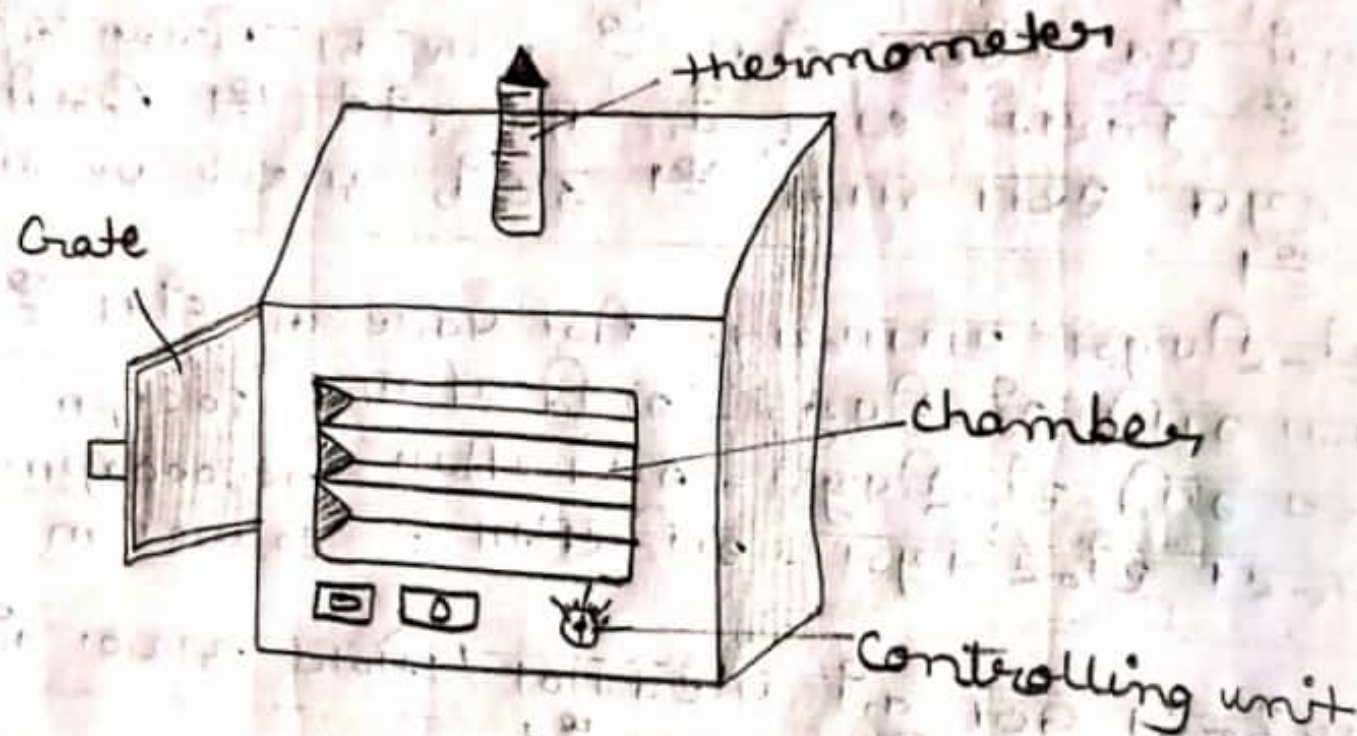 thermometer
Gate
chamber
controlling unit